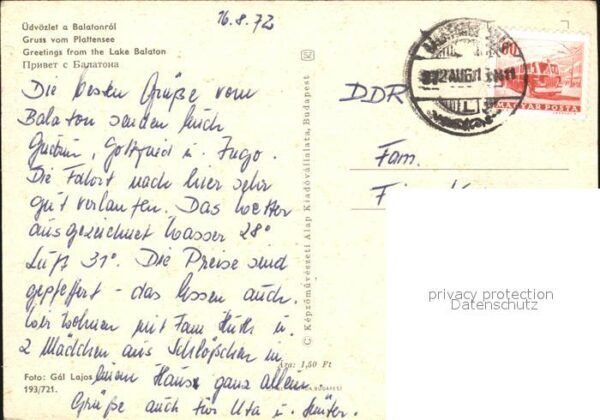 16.8.72
Üdvözlet a Balatonról
Gruss vom Plattensee
Greetings from the Lake Balaton
Привет с Балатона
Die besten Grüße vom
Balaton senden Euch
Gudrun, Gottfried u. Ingo.
Die Fahrt nach hier sehr
gut verlaufen. Das Wetter
ausgezeichnet Wasser 28°
Luft 31°. Die Preise sind
gepfeffert - das Essen auch.
Wir wohnen mit Fam. Huth u.
2 Mädchen aus in
einem Haus ganz allein.
Grüße auch für Uta u. Günter.
Foto: Gál Lajos
193/721.
Ára: 1,50 Ft
BUDAPEST
© Képzőművészeti Alap Kiadóvállalata, Budapest
DDR
Fam.
72 AUG
60
MAGYAR POSTA
privacy protection
Datenschutz